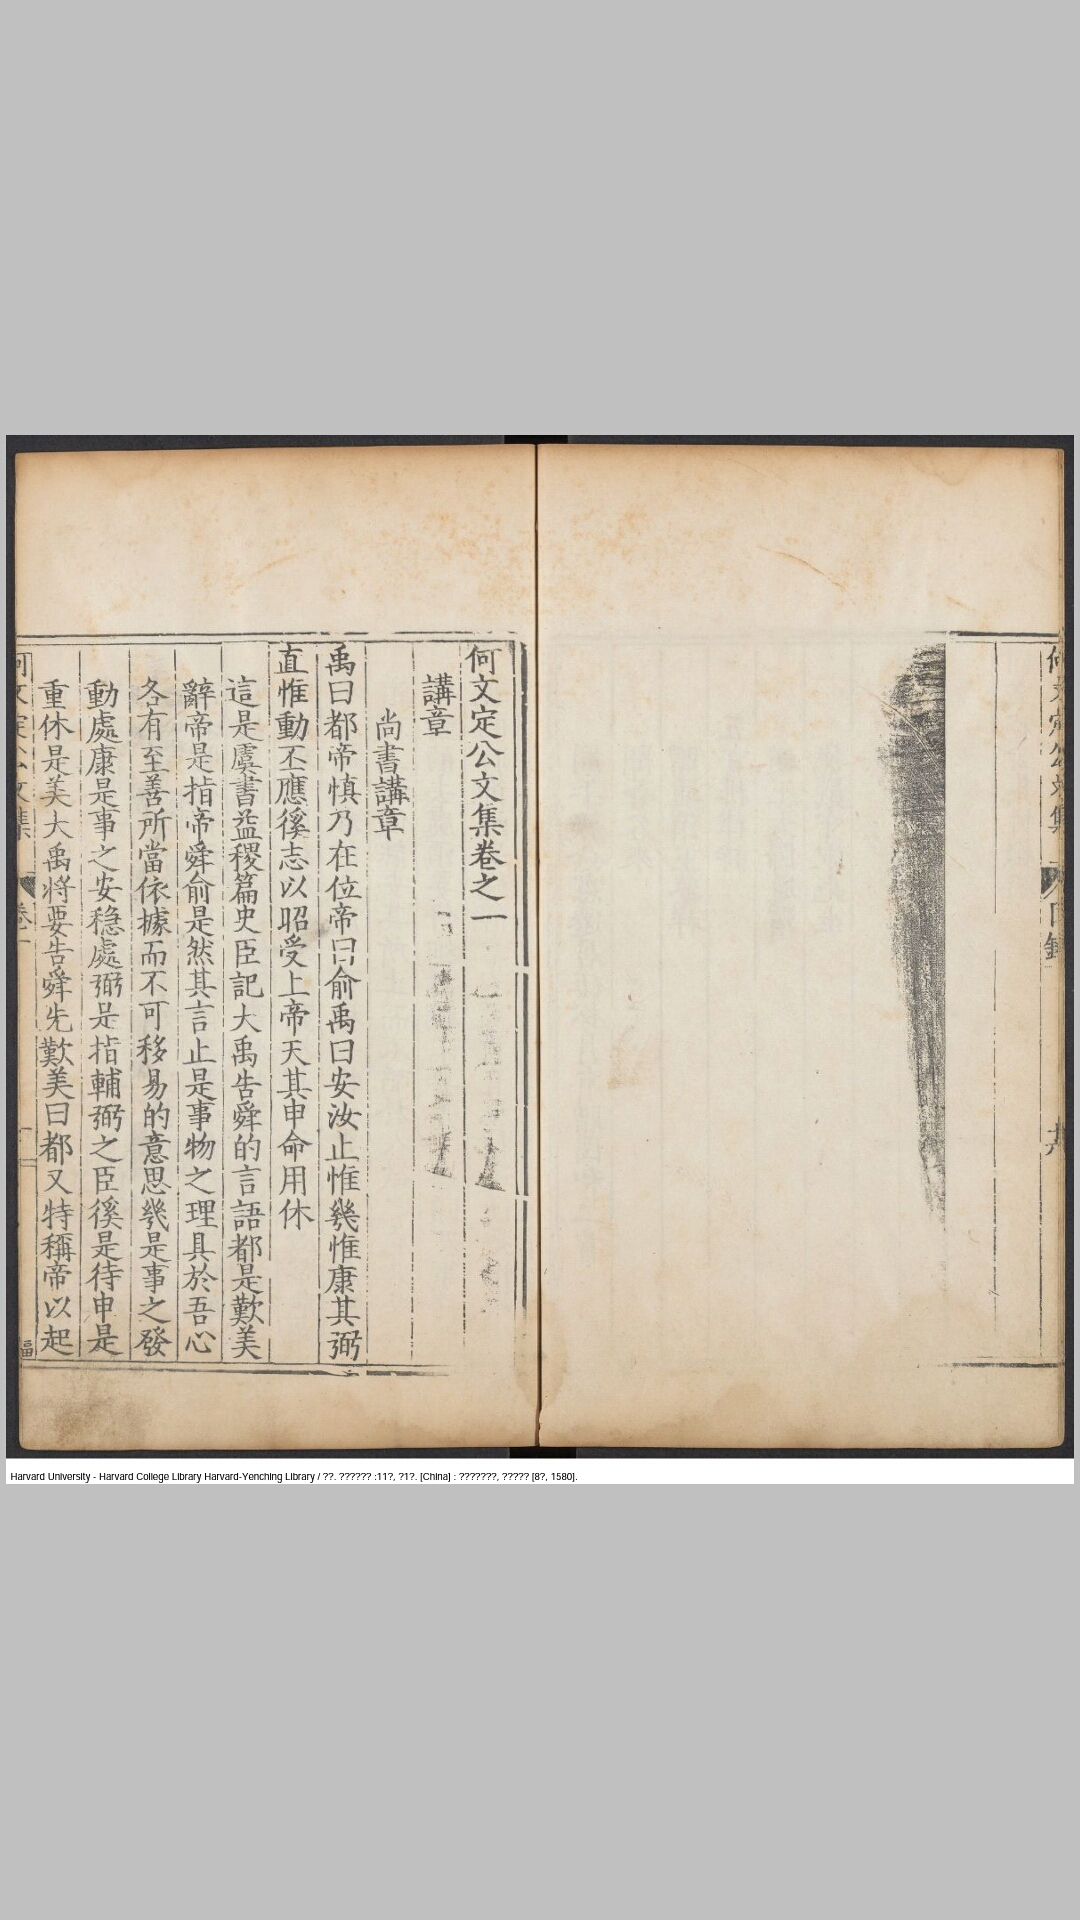 何文定公文集卷之一
講章
尚書講章
禹曰都帝慎乃在位帝曰俞禹曰安汝止惟幾惟康其弼
直惟動丕應徯志以昭受上帝天其申命用休
這是虞書益稷篇史臣記大禹告舜的言語都是歎美
辭帝是指帝舜俞是然其言止是事物之理具於吾心
各有至善所當依據而不可移易的意思幾是事之發
動處康是事之安穩處弼是指輔弼之臣徯是待申是
重休是美大禹將要告舜先歎美曰都又特稱帝以起
Harvard University - Harvard College Library Harvard-Yenching Library / ??. ?????? :11?, ?1?. [China] : ???????, ????? [8?, 1580].